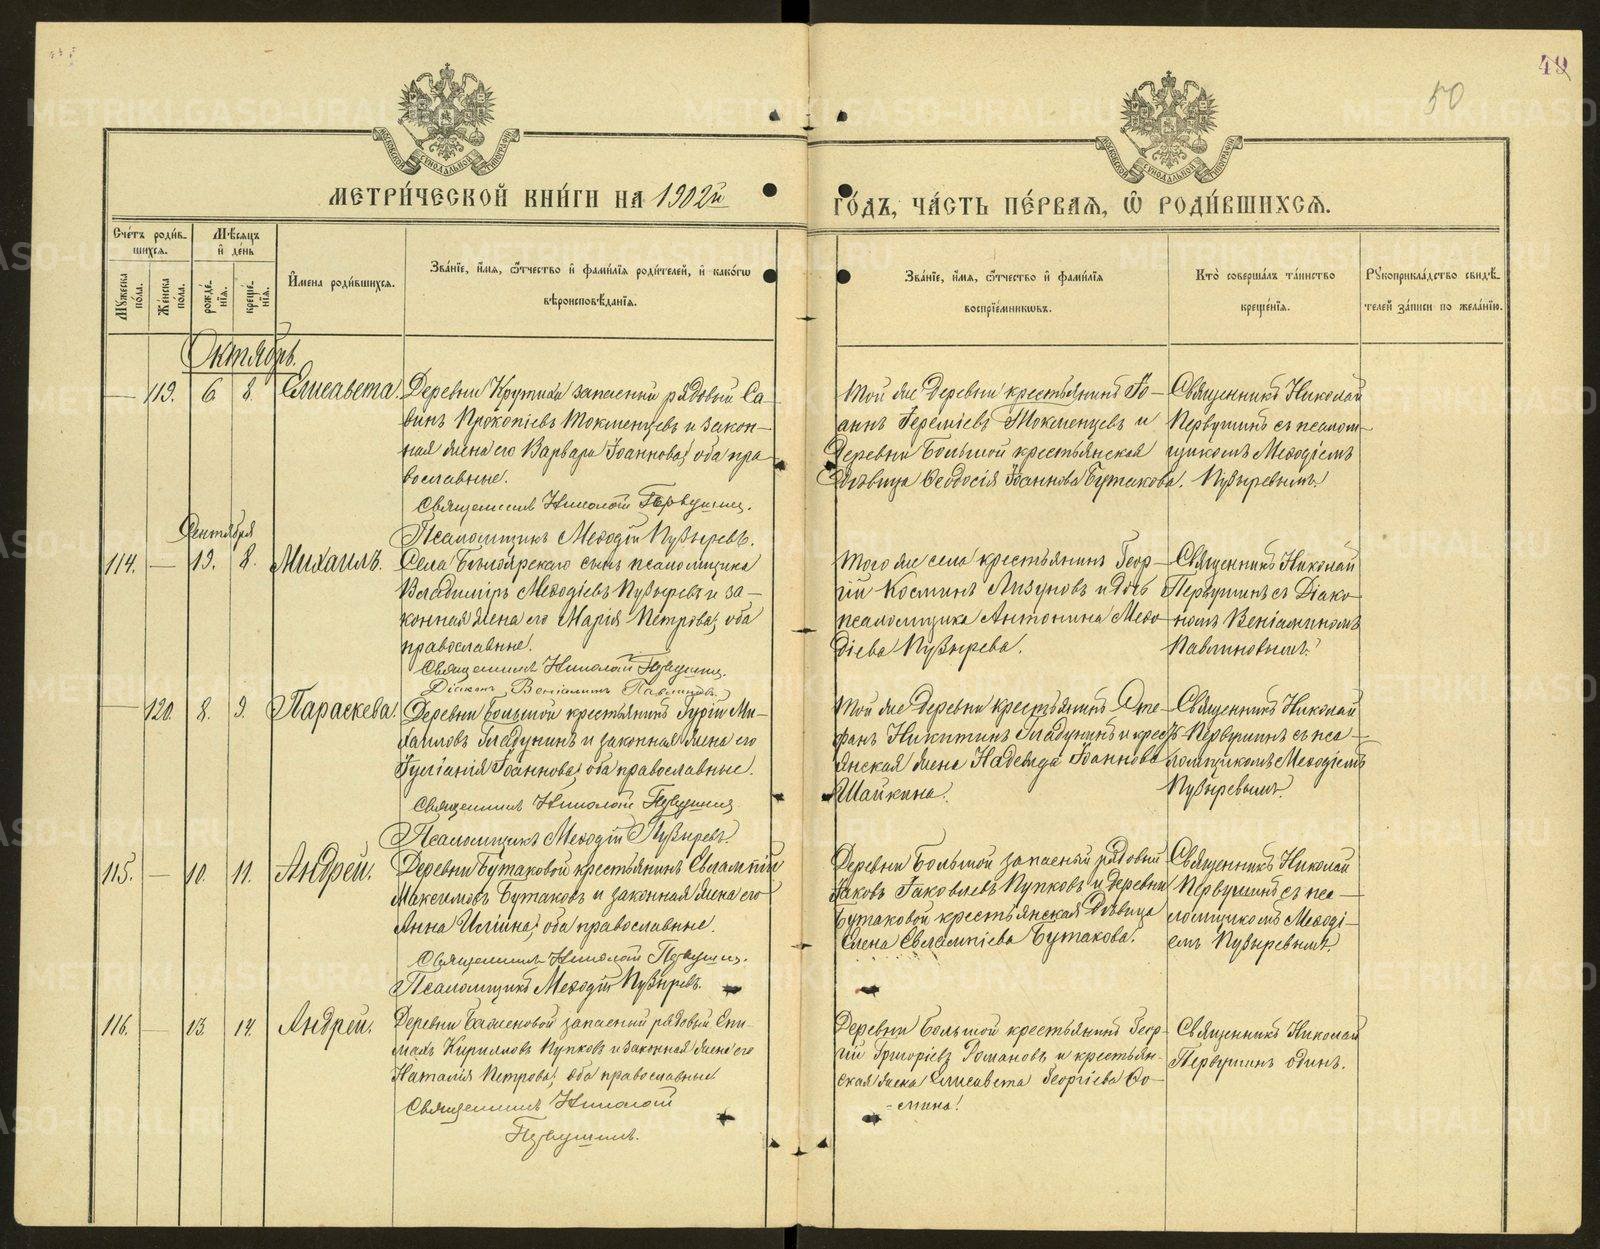 49
50
МЕТРИ́ЧЕСКОЙ КНИ́ГИ НА 1902й
ГО́ДЪ, ЧА́СТЬ ПЕ́РВАЯ, Ѡ҆ РОДИ́ВШИХСЯ.
Сче́тъ роди́в-
шихся.
Мѣ́сяцъ
и҆ де́нь
Мꙋ́жеска
пола.
Же́нска
по́ла.
рожде́-
нїѧ.
креще́-
нїѧ.
И҆мена роди́вшихся.
Зва́нїе, и҆́мя, ѻ҆́тчество и҆ фами́лїя роди́телей, и҆ како́гѡ
вѣроисповѣ́данїя.
Зва́нїе, и҆́мя, ѻ҆́тчество и҆ фами́лїя
воспрїе́мникѡвъ.
Кто̀ соверша́лъ та́инство
креще́нїя.
Рꙋкоприкла́дство свидѣ́-
телей за́писи по жела́нїю.
Октябрь.
119. 6. 8. Елисавета.
Деревни Крутихи запасный рядовый Са-
винъ Прокопіевъ Токменцевъ и закон-
ная жена его Варвара Іоаннова, оба пра-
вославные.
Священникъ Николай Первушинъ.
Псаломщикъ Меѳодій Пузыревъ.
Той же деревни крестьянинъ Іо-
аннъ Іереміевъ Токменцевъ и
деревни Большой крестьянская
дѣвица Ѳеодосія Іоаннова Бутакова.
Священникъ Николай
Первушинъ съ псалом-
щикомъ Меѳодіемъ
Пузыревымъ.
Сентября
114. — 19. 8. Михаилъ.
Села Бѣлоярскаго сынъ псаломщика
Владиміръ Меѳодіевъ Пузыревъ и за-
конная жена его Марія Петрова, оба
православные.
Священникъ Николай Первушинъ.
Діаконъ Веніаминъ Павлиновъ.
Того же села крестьянинъ Геор-
гій Косминъ Лизуновъ и дочь
псаломщика Антонина Меѳо-
діева Пузырева.
Священникъ Николай
Первушинъ съ Діако-
номъ Веніаминомъ
Павлиновымъ.
— 120. 8. 9. Параскева.
Деревни Большой крестьянинъ Гурій Ми-
хаиловъ Гладунинъ и законная жена его
Іуліанія Іоаннова, оба православные.
Священникъ Николай Первушинъ
Псаломщикъ Меѳодій Пузыревъ.
Той же деревни крестьянинъ Сте-
фанъ Никитинъ Гладунинъ и кресть-
янская жена Надежда Іоаннова
Шайкина.
Священникъ Николай
Первушинъ съ пса-
ломщикомъ Меѳодіемъ
Пузыревымъ.
115. — 10. 11. Андрей.
Деревни Бутаковой крестьянинъ Евлампій
Максимовъ Бутаковъ и законная жена его
Анна Иліина, оба православные.
Священникъ Николай Первушинъ.
Псаломщикъ Меѳодій Пузыревъ.
Деревни Большой запасный рядовый
Іаковъ Іаковлевъ Пупковъ и деревни
Бутаковой крестьянская дѣвица
Елена Евлампіева Бутакова.
Священникъ Николай
Первушинъ съ пса-
ломщикомъ Меѳоді-
емъ Пузыревымъ.
116. — 13. 14. Андрей.
Деревни Баженовой запасный рядовый Епи-
махъ Кирилловъ Пупковъ и законная жена его
Наталія Петрова, оба православные.
Священникъ Николай
Первушинъ.
Деревни Большой крестьянинъ Геор-
гій Григоріевъ Романовъ и крестьян-
ская жена Елисавета Георгіева Ѳо-
мина.
Священникъ Николай
Первушинъ одинъ.